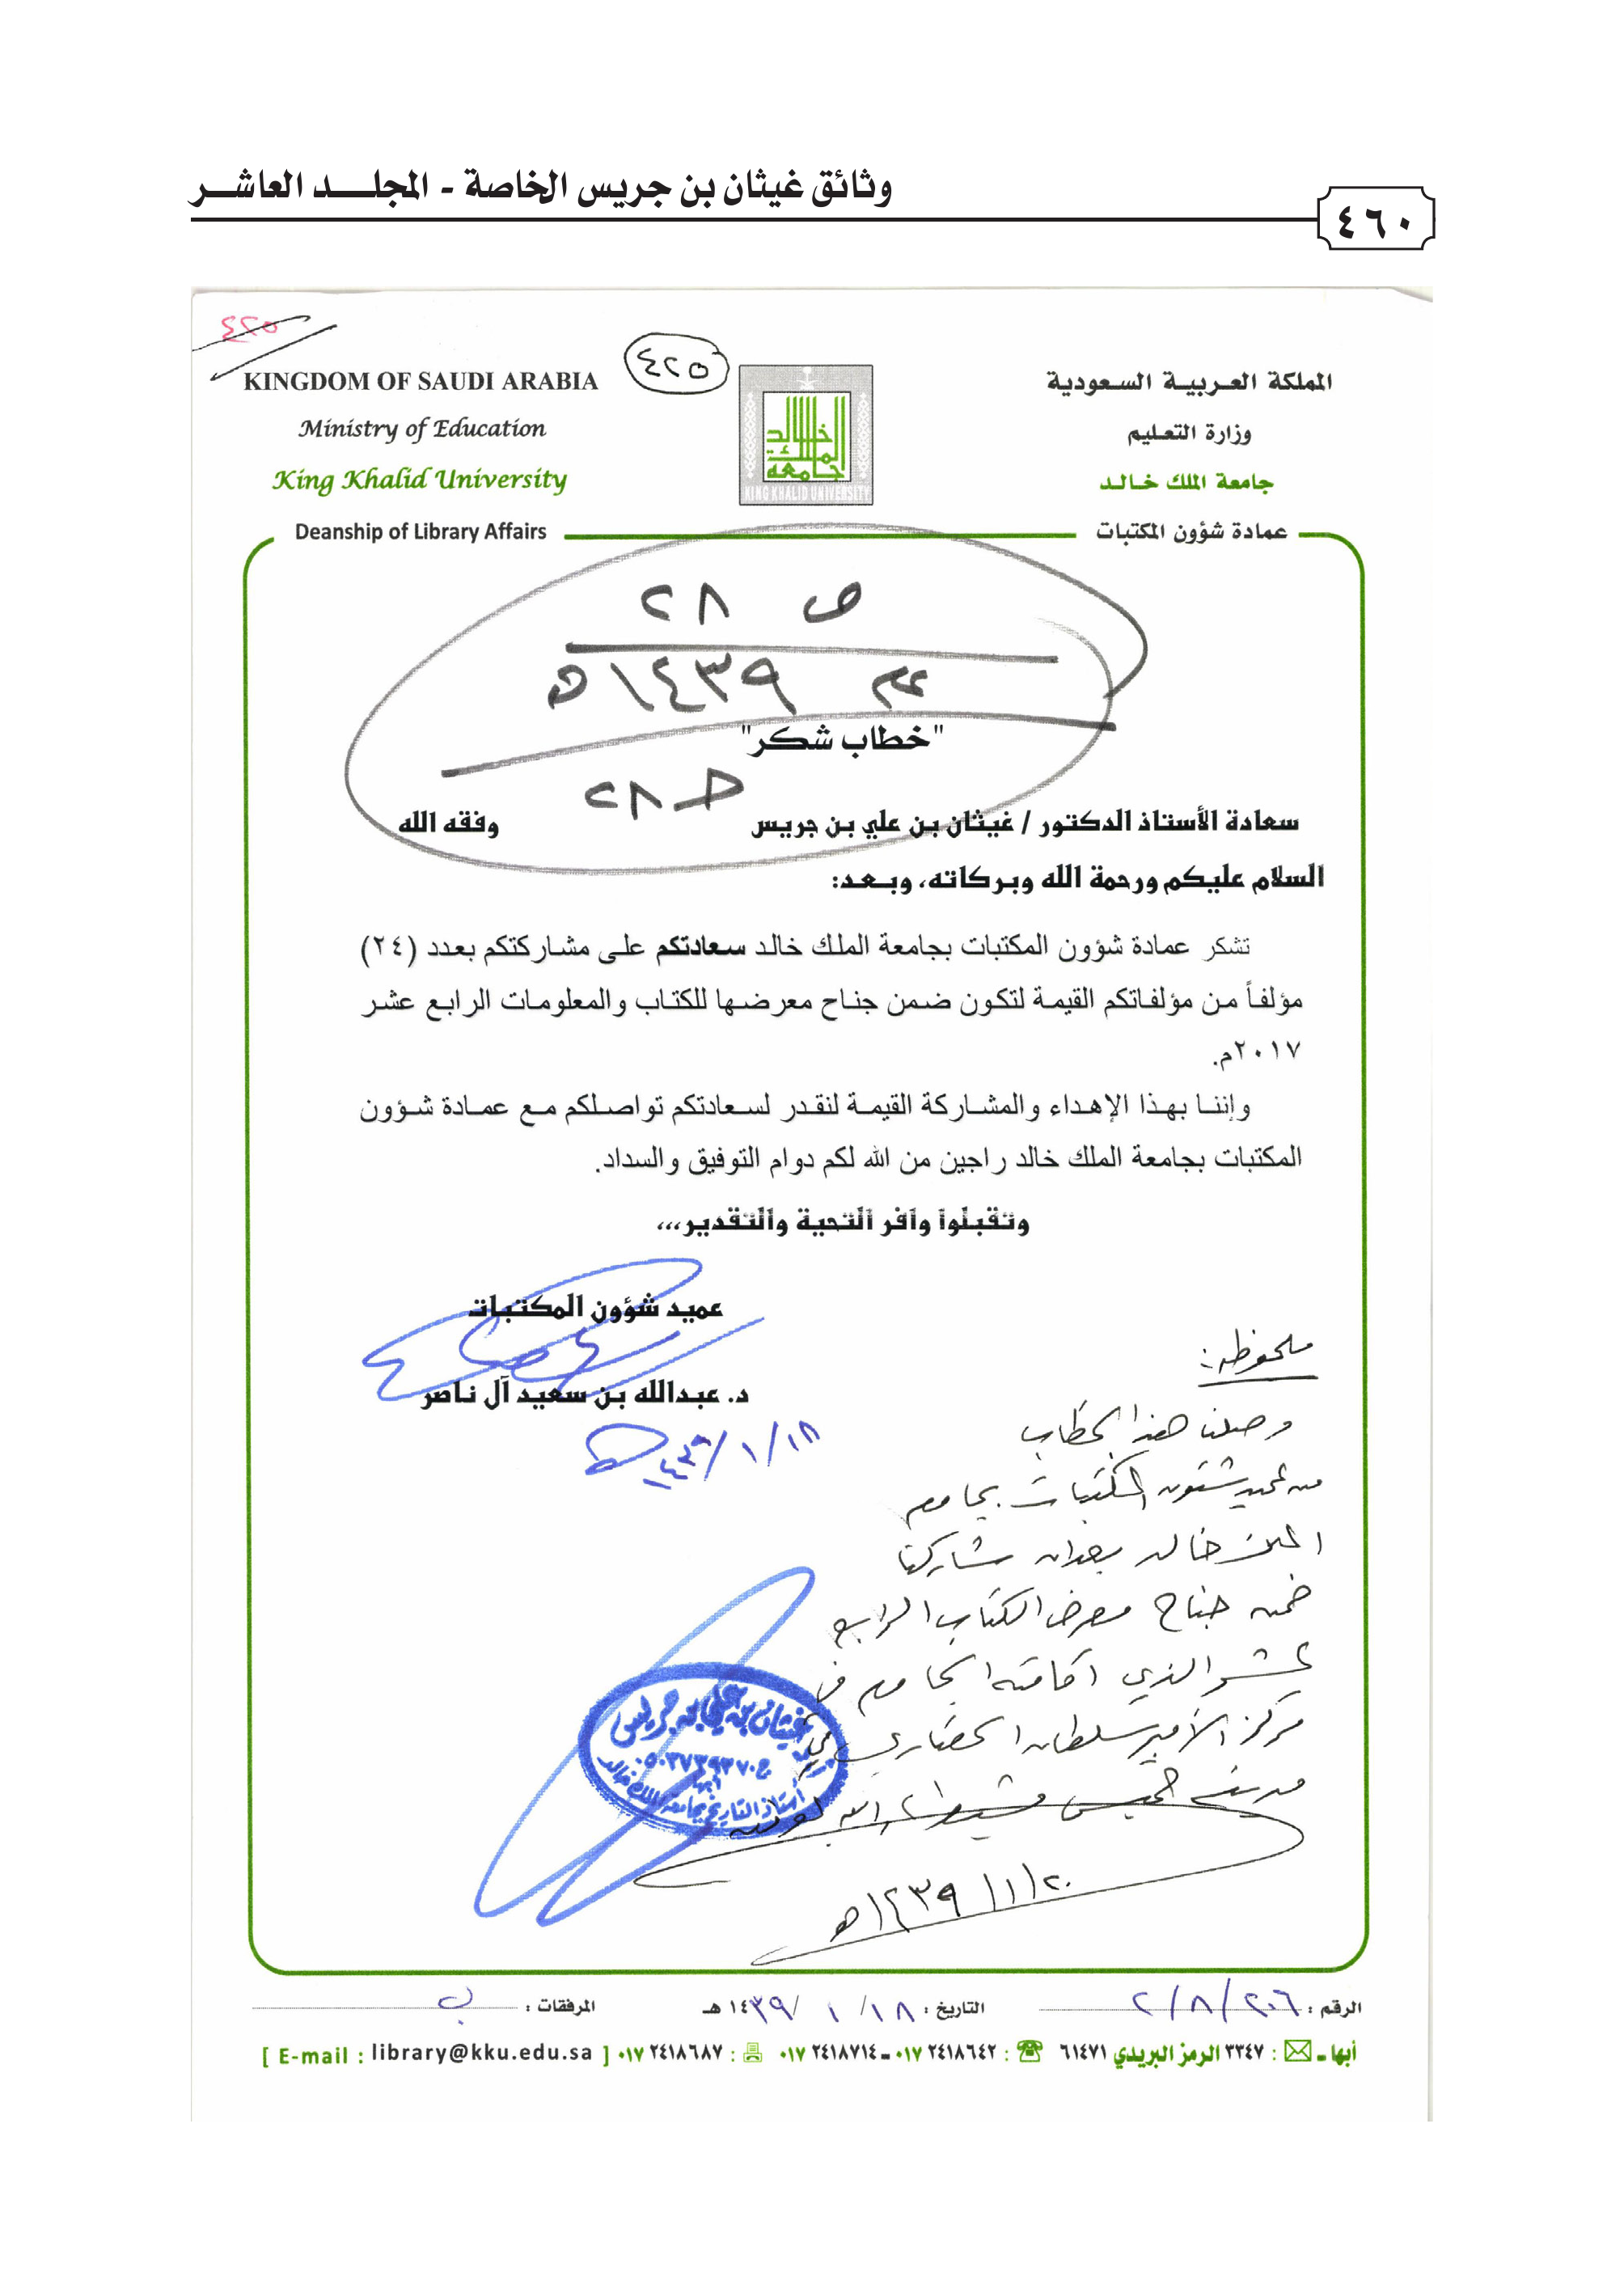 وثائق غيثان بن جريس الخاصة - المجلـــد العاشـــر
٤٦٠
٤٢٥
٤٢٥
KINGDOM OF SAUDI ARABIA
Ministry of Education
King Khalid University
Deanship of Library Affairs
المملكة العربية السعودية
وزارة التعليم
جامعة الملك خالد
عمادة شؤون المكتبات
جامعة الملك خالد
KING KHALID UNIVERSITY
ص ٢٨
١٤٣٩هـ
"خطاب شكر"
٢٨
سعادة الأستاذ الدكتور / غيثان بن علي بن جريس وفقه الله
السلام عليكم ورحمة الله وبركاته، وبعد:
تشكر عمادة شؤون المكتبات بجامعة الملك خالد سعادتكم على مشاركتكم بعدد (٢٤)
مؤلفاً من مؤلفاتكم القيمة لتكون ضمن جناح معرضها للكتاب والمعلومات الرابع عشر
٢٠١٧م.
وإننا بهذا الإهداء والمشاركة القيمة لنقدر لسعادتكم تواصلكم مع عمادة شؤون
المكتبات بجامعة الملك خالد راجين من الله لكم دوام التوفيق والسداد.
وتقبلوا وافر التحية والتقدير،،،
عميد شؤون المكتبات
د. عبدالله بن سعيد آل ناصر
١٨/١/١٤٣٩هـ
ملحوظة:
وصلنا هذا الخطاب
من عميد شئون المكتبات بجامعة
الملك خالد بعد أن شاركنا
ضمن جناح معرض الكتاب الرابع
عشر الذي أقامته الجامعة في
مركز الأمير سلطان الحضاري في
مدينة خميس مشيط
٢٠/١/١٤٣٩هـ
غيثان بن علي بن جريس
أبها
أستاذ التاريخ بجامعة الملك خالد
الرقم : ٢/٨/٢٠٦ التاريخ : ١٨/ ١ /١٤٣٩ هـ المرفقات :
أبها - : ٣٣٤٧ الرمز البريدي ٦١٤٧١ : ٠١٧ ٢٤١٨٦٤٢ - ٠١٧ ٢٤١٨٧١٤ : ٠١٧ ٢٤١٨٦٨٧ [ E-mail : library@kku.edu.sa ]